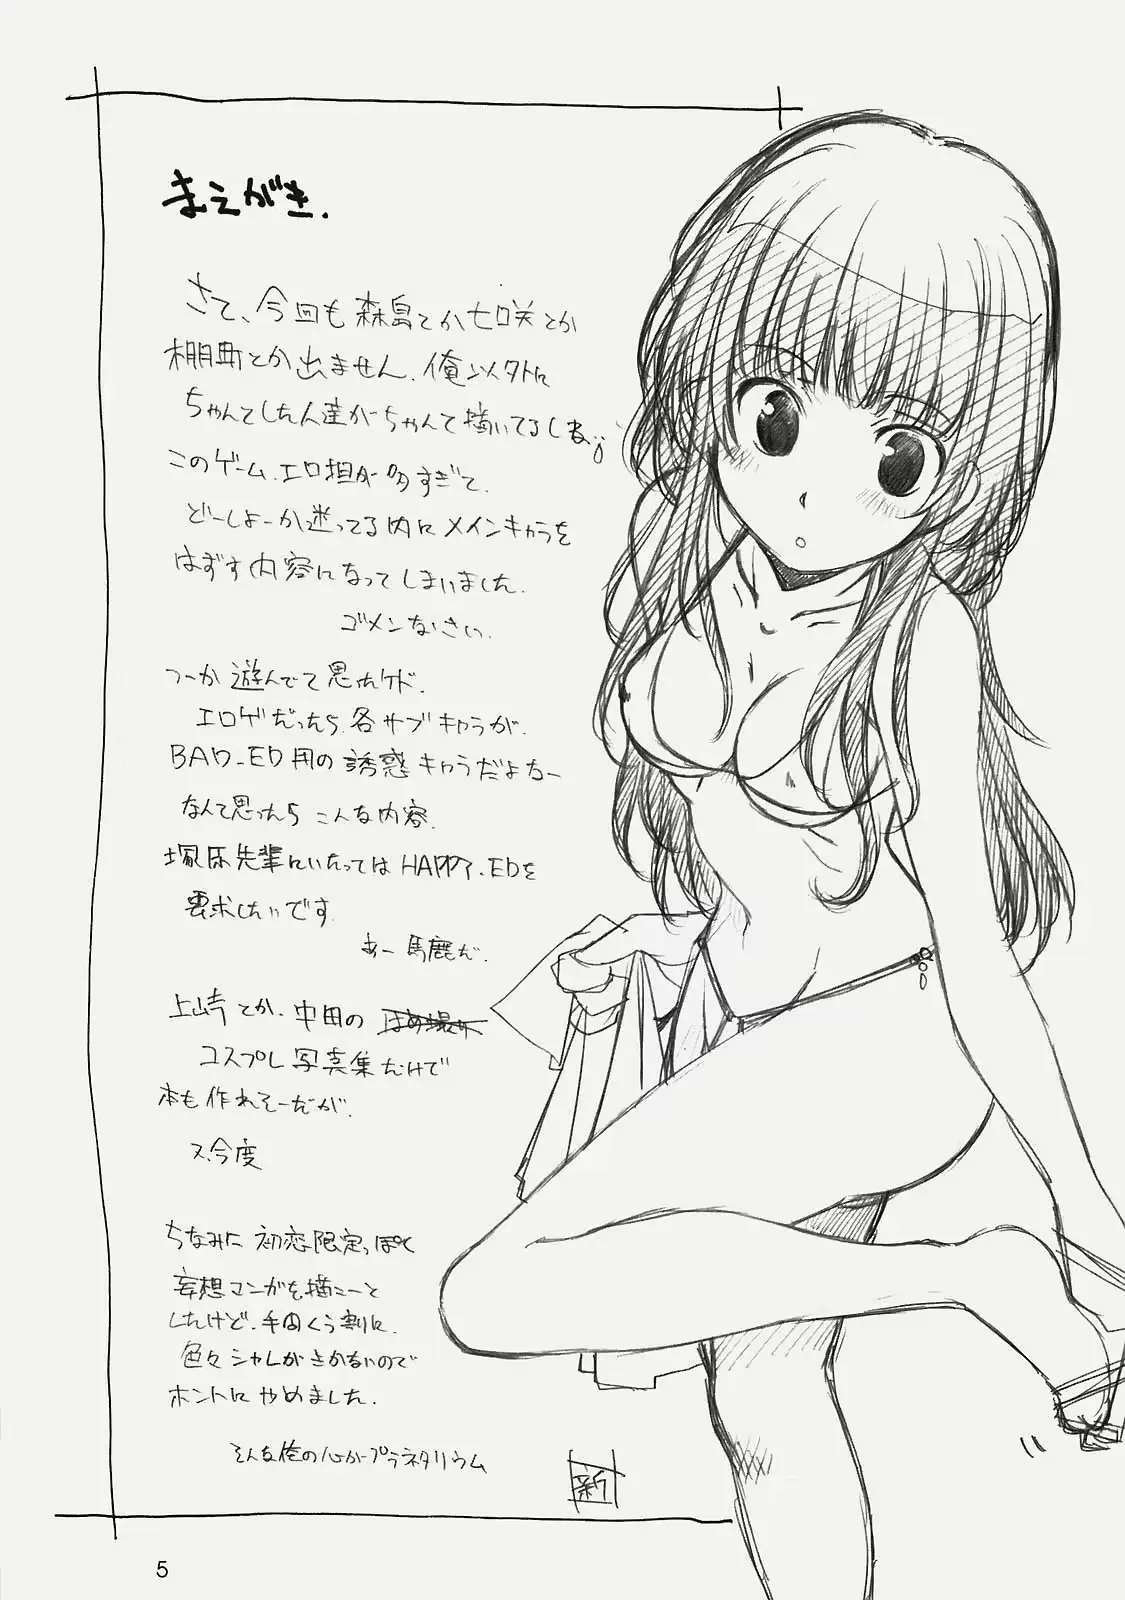 まえがき.
さて、今回も森島とか七咲とか
棚町とか出ません。俺以外に
ちゃんとした人達がちゃんと描いてるしね。
このゲーム、エロ担が多すぎて、
どーしよーか迷ってる内にメインキャラを
はずす内容になってしまいました。
ゴメンなさい。
つーか遊んでて思ったケド、
エロゲだったら、各サブキャラが、
BAD-ED用の誘惑キャラだよなー
なんて思ったらこんな内容。
塚原先輩にいたってはHAPPY.EDを
要求したいです
あー馬鹿だ。
上崎とか、中田の
コスプレ写真集だけで
本も作れそーだが、
ス、今度
ちなみに初恋限定っぽく
妄想マンガを描こーと
したけど、手間くう割に、
色々シャレがきかないので
ホントにやめました。
そんな俺の心がプラネタリウム
新
5